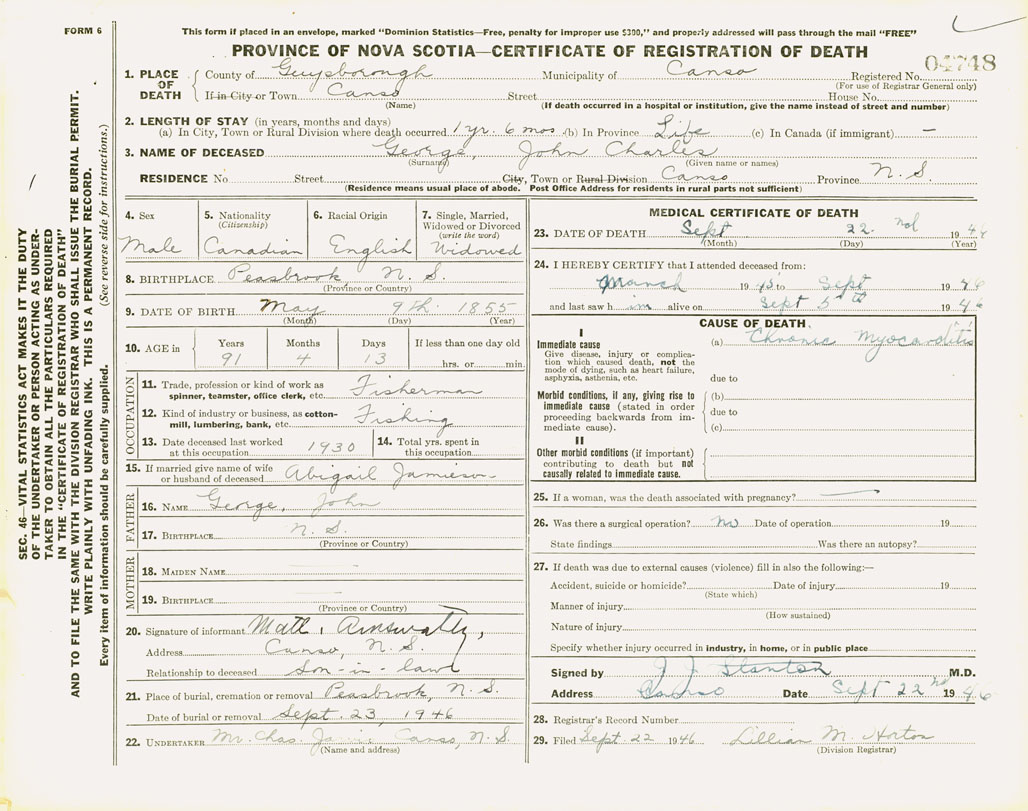 FORM 6
This form if placed in an envelope, marked "Dominion Statistics—Free, penalty for improper use $300," and properly addressed will pass through the mail "FREE"
PROVINCE OF NOVA SCOTIA—CERTIFICATE OF REGISTRATION OF DEATH
04748
1. PLACE OF DEATH
County of Guysborough Municipality of Canso Registered No.
(For use of Registrar General only)
If in City or Town Canso Street House No.
(Name) (If death occurred in a hospital or institution, give the name instead of street and number)
2. LENGTH OF STAY (in years, months and days)
(a) In City, Town or Rural Division where death occurred 1 yr. 6 mos. (b) In Province Life (c) In Canada (if immigrant) —
3. NAME OF DECEASED George, John Charles
(Surname) (Given name or names)
RESIDENCE No. Street City, Town or Rural Division Canso Province N.S.
(Residence means usual place of abode. Post Office Address for residents in rural parts not sufficient)
4. Sex Male
5. Nationality (Citizenship) Canadian
6. Racial Origin English
7. Single, Married, Widowed or Divorced (write the word) Widowed
8. BIRTHPLACE Peasbrook N.S.
(Province or Country)
9. DATE OF BIRTH May 9th 1855
(Month) (Day) (Year)
10. AGE in Years Months Days If less than one day old
91 4 13 hrs. or min.
OCCUPATION
11. Trade, profession or kind of work as spinner, teamster, office clerk, etc. Fisherman
12. Kind of industry or business, as cotton-mill, lumbering, bank, etc. Fishing
13. Date deceased last worked at this occupation 1930
14. Total yrs. spent in this occupation.
15. If married give name of wife or husband of deceased Abigail Jamieson
FATHER
16. NAME George, John
17. BIRTHPLACE N.S.
(Province or Country)
MOTHER
18. MAIDEN NAME
19. BIRTHPLACE
(Province or Country)
20. Signature of informant Matt.
Address Canso, N.S.
Relationship to deceased Son-in-law
21. Place of burial, cremation or removal Peasbrook, N.S.
Date of burial or removal Sept. 23, 1946
22. UNDERTAKER Mr. Chas. Canso, N.S.
(Name and address)
MEDICAL CERTIFICATE OF DEATH
23. DATE OF DEATH Sept 22 nd 1946
(Month) (Day) (Year)
24. I HEREBY CERTIFY that I attended deceased from:
March 1945 to Sept 1946
and last saw him alive on Sept 5th 1946
CAUSE OF DEATH
I
Immediate cause (a) Chronic Myocarditis
Give disease, injury or complication which caused death, not the mode of dying, such as heart failure, asphyxia, asthenia, etc.
due to
Morbid conditions, if any, giving rise to immediate cause (stated in order proceeding backwards from immediate cause).
(b)
due to
(c)
II
Other morbid conditions (if important) contributing to death but not causally related to immediate cause.
25. If a woman, was the death associated with pregnancy?
26. Was there a surgical operation? no Date of operation 19
State findings Was there an autopsy?
27. If death was due to external causes (violence) fill in also the following:—
Accident, suicide or homicide? Date of injury 19
(State which)
Manner of injury
(How sustained)
Nature of injury
Specify whether injury occurred in industry, in home, or in public place
Signed by J. J. Stanton M.D.
Address Canso Date Sept 22nd 1946
28. Registrar's Record Number
29. Filed Sept. 22 1946 Lillian M. Horton
(Division Registrar)
SEC. 46—VITAL STATISTICS ACT MAKES IT THE DUTY
OF THE UNDERTAKER OR PERSON ACTING AS UNDER-
TAKER TO OBTAIN ALL THE PARTICULARS REQUIRED
IN THE "CERTIFICATE OF REGISTRATION OF DEATH"
AND TO FILE THE SAME WITH THE DIVISION REGISTRAR WHO SHALL ISSUE THE BURIAL PERMIT.
WRITE PLAINLY WITH UNFADING INK. THIS IS A PERMANENT RECORD.
Every item of information should be carefully supplied. (See reverse side for instructions.)